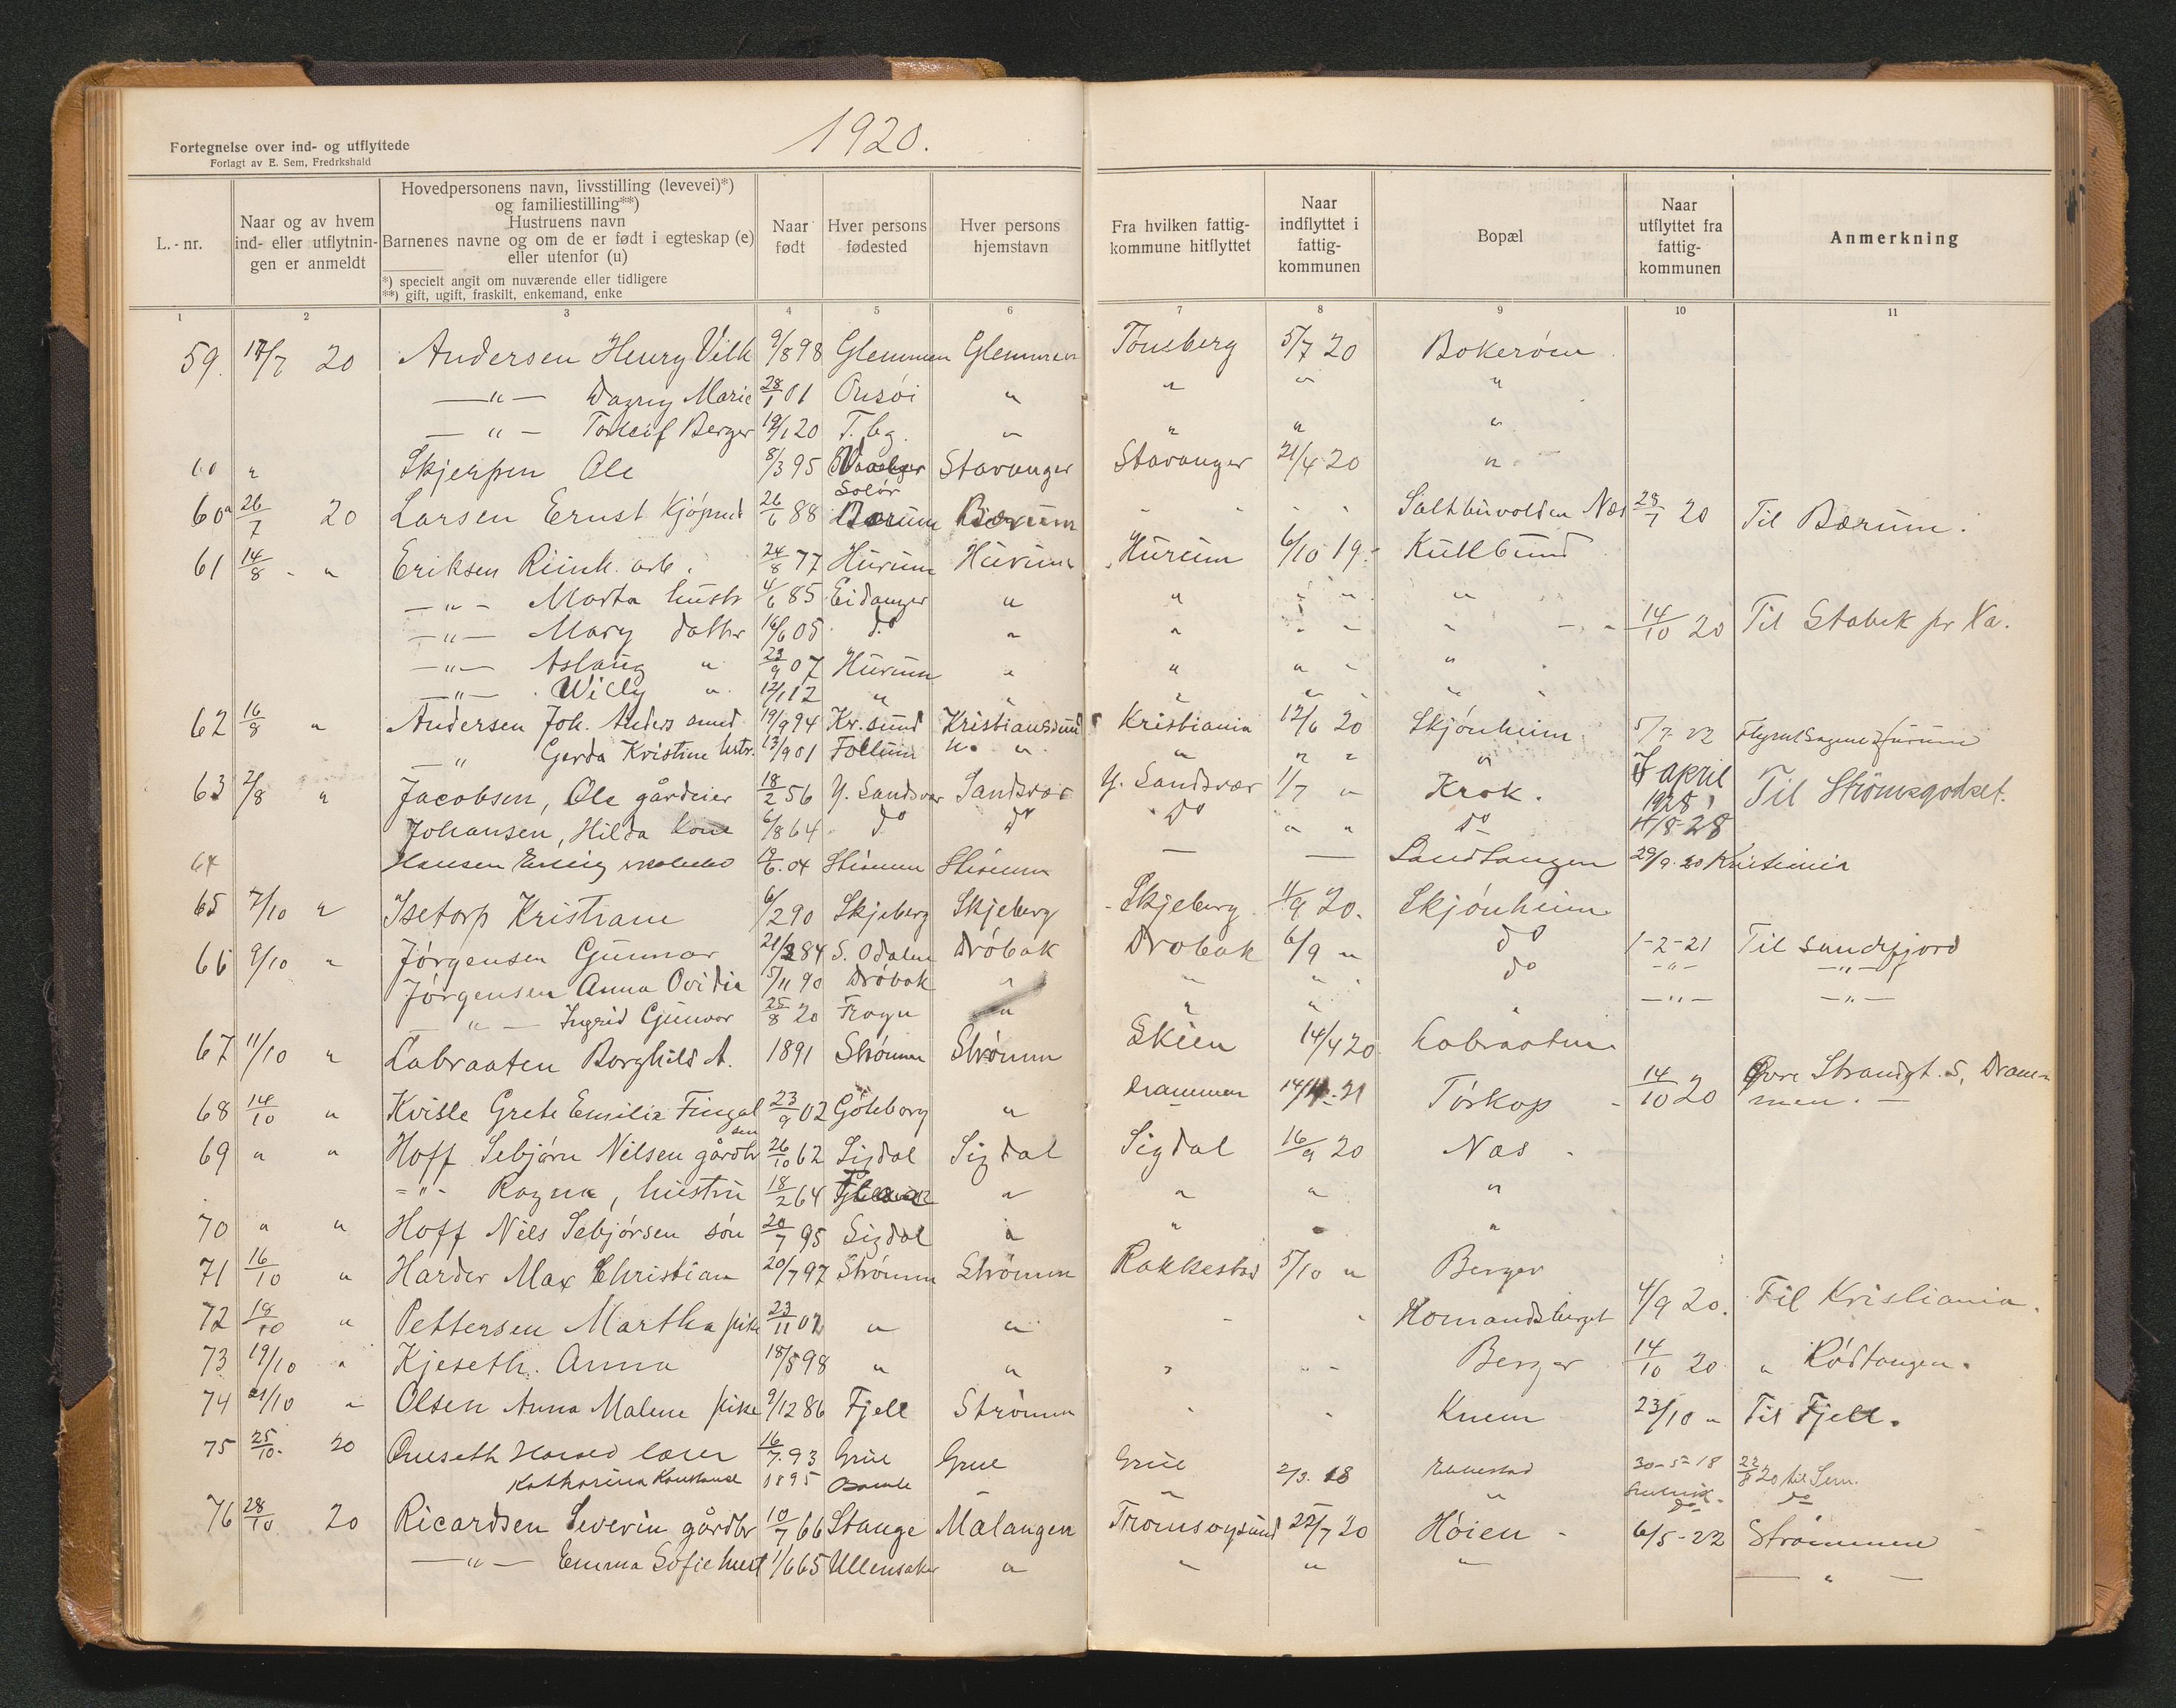 1920.
Fortegnelse over ind- og utflyttede
Forlagt av E. Sem, Fredrkshald
L.-nr.
Naar og av hvem ind- eller utflytningen er anmeldt
Hovedpersonens navn, livsstilling (levevei)*)
og familiestilling**)
Hustruens navn
Barnenes navne og om de er født i egteskap (e)
eller utenfor (u)
*) specielt angit om nuværende eller tidligere
**) gift, ugift, fraskilt, enkemand, enke
Naar født
Hver persons fødested
Hver persons hjemstavn
Fra hvilken fattig-kommune hitflyttet
Naar indflyttet i fattig-kommunen
Bopæl
Naar utflyttet fra fattig-kommunen
Anmerkning
1 2 3 4 5 6 7 8 9 10 11
59. 17/7 20 Andersen Henry Vilh 9/8 98 Glemmen Glemmen Tønsberg 5/7 20 Bokerøen
—"— Dagny Marie 28/1 01 Onsøi " " " "
—"— Torleif Berger 19/1 20 T.bg. " " " "
60 " Skjerpen Ole 8/3 95 Stavanger Stavanger 21/4 20 "
60a 26/7 20 Larsen Ernst Kjøpmd 26/6 88 Solør Bærum Bærum - - - Saltbuvolden Næs 28/7 20 Til Bærum.
61 14/8 - " Eriksen Rinh. arb. 24/8 77 Hurum Hurum Hurum 6/10 19 - Kullbund
—"— Marta hustr 4/6 85 Eidanger " " " " "
—"— Mary datter 16/6 05 do " " - - - 14/10 20 Til Stabek pr Xa.
—"— Aslaug " 23/9 07 Hurum " " " "
—"— Willy " 12/1 12 " " " " "
62 16/8 " Andersen Joh. Anders smed 19/9 94 Kr.sund Kristianssund Kristiania 12/6 20 Skjønheim 5/7 22
—" Gerda Kristine hstr. 13/9 01 Follum " " " " "
63 2/8 " Jacobsen, Ole gårdeier 18/2 56 Y. Sandsvær Sandsvær Y. Sandsvær 1/7 " Krok. april 1928 Til Strømsgodset.
Johansen, Hilda kone 6/8 64 do do do " " do 11/8-28
64 Hansen Erling 19/6 04 Strømm Strømm — — Sandtangen 29/9 20 Kristiania
65 7/10 " Isetorp Kristiane 6/2 90 Skjeberg Skjeberg Skjeberg 11/9 20. Skjønheim
66 9/10 " Jørgensen Gunnar 21/2 84 S. Odalen Drøbak Drøbak 6/9 " do 1-2-21 Til Sandefjord
Jørgensen Anna Ovidia 5/11 90 Drøbak " " " do -"- -"-
—"— Ingrid Gunvor 25/8 20 Frogn " " " " —"— —"—
67 11/10 " Labraaten Borghild A. 1891 Strømm Strømm Skien 14/4 20 Labraaten
68 14/10 " Kvisle Grete Emilie Fingalsen 23/9 02 Göteborg " Drammen 14/4-21 Tørkop - 14/10 20 Øvre Strandgt. 5, Drammen. —
69 " " Hoff Sebjørn Nilsen gårdbr 26/10 62 Sigdal Sigdal Sigdal 16/9 20 Næs -
-"- Ragna, hustru 18/2 64 " " " "
70 " " Hoff Nils Sebjørsen søn 20/7 95 Sigdal " " - "
71 16/10 " Harder Max Christian 20/7 97 Strømm Strømm Rakkestad 5/10 " Berger
72 19/10 " Pettersen Martha pike 23/11 02 " " - - Komandsberget 4/9 20. Til Kristiania.
73 19/10 " Kjeseth. Anna 18/5 98 " " " " - Berger 14/10 20 " Rødtangen.
74 21/10 " Olsen Anna Malene pike 9/12 86 Fjell Strømm - - Knem 23/10 " Til Fjell.
75 25/10 20 Harald lærer 16/7. 93 Grue Grue Grue 2/3. 18 30-5-18 22/8 20 til Sem.
Katharina 1895 - " " do do
76 28/10 20 Ricardsen Severin gårdbr 10/7 66 Stange Malangen Tromsøysund 22/7 20 Høien - 6/5-22 Strømmen
—"— Emma Sofie hust 1/6 65 Ullensaker " " " " — " —